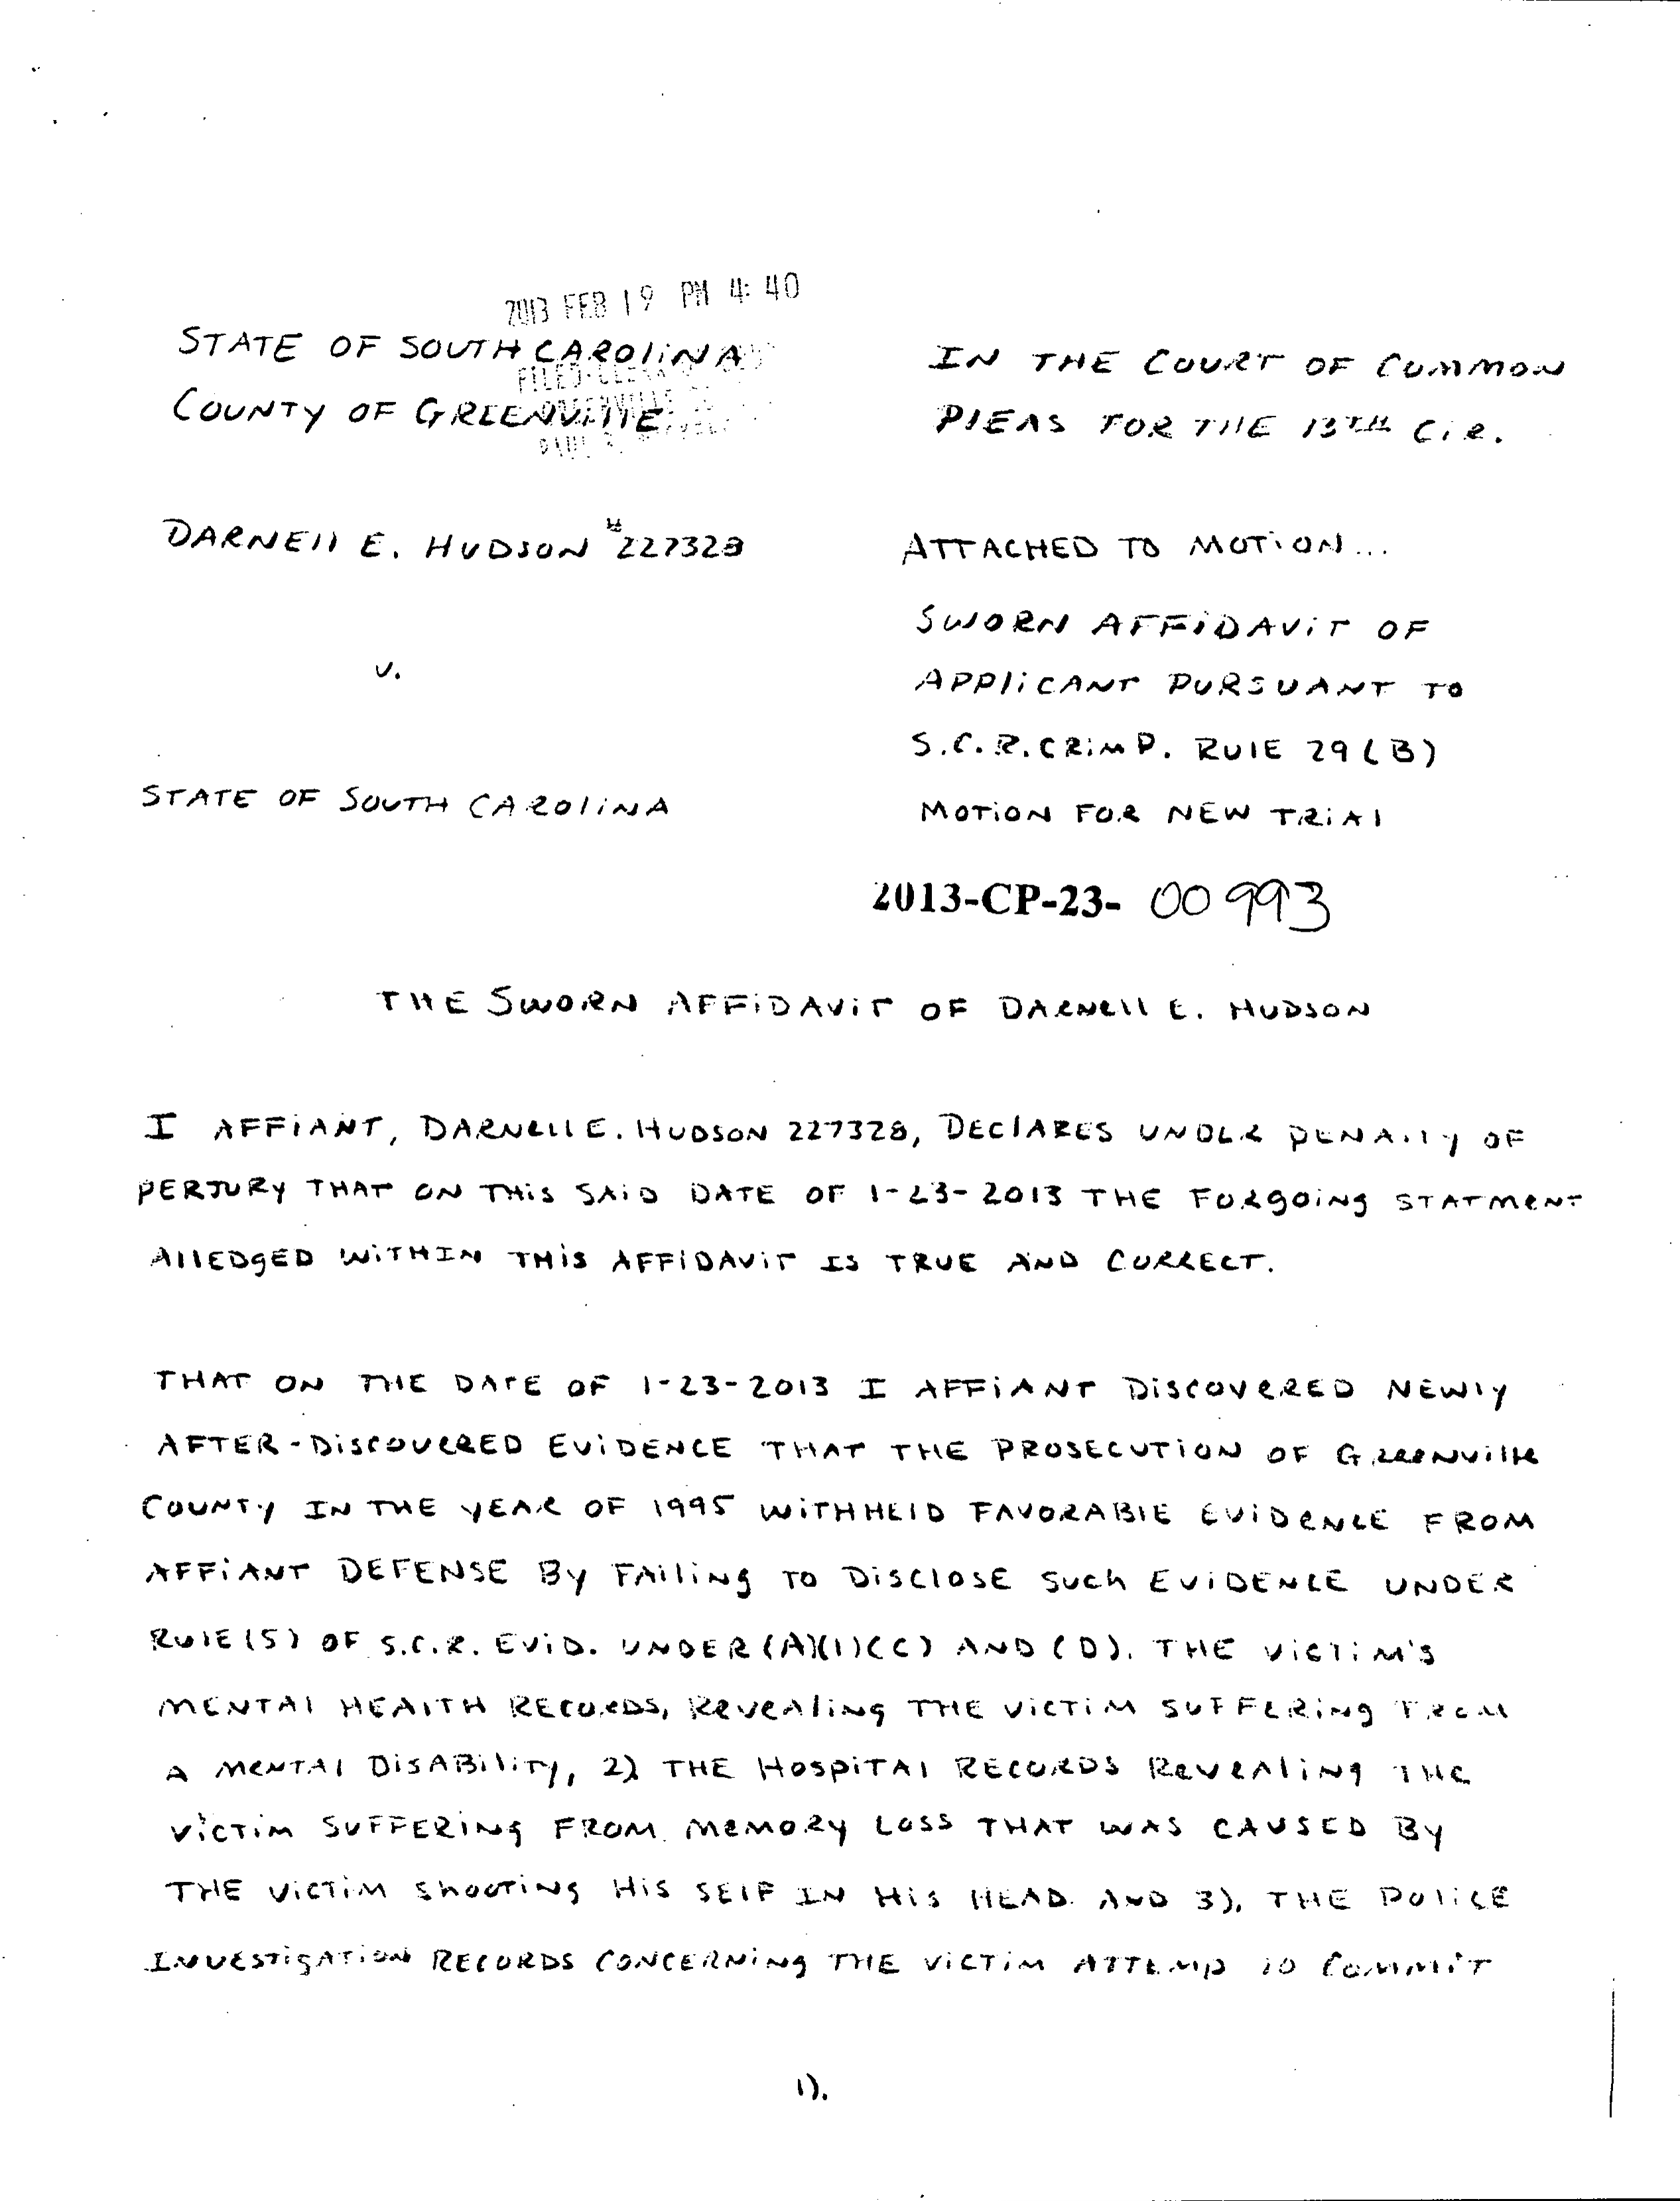 2013 FEB 19 PM 4:40
STATE OF SOUTH CAROLINA
COUNTY OF GREENVILLE
IN THE COURT OF COMMON
PLEAS FOR THE 13TH CIR.
DARNELL E. HUDSON #227328
v.
STATE OF SOUTH CAROLINA
ATTACHED TO MOTION...
SWORN AFFIDAVIT OF
APPLICANT PURSUANT TO
S.C.R.CRIM P. RULE 29(B)
MOTION FOR NEW TRIAL
2013-CP-23- 00993
THE SWORN AFFIDAVIT OF DARNELL E. HUDSON
I AFFIANT, DARNELL E. HUDSON 227328, DECLARES UNDER PENALTY OF
PERJURY THAT ON THIS SAID DATE OF 1-23-2013 THE FORGOING STATMENT
ALLEDGED WITHIN THIS AFFIDAVIT IS TRUE AND CORRECT.
THAT ON THE DATE OF 1-23-2013 I AFFIANT DISCOVERED NEWLY
AFTER-DISCOVERED EVIDENCE THAT THE PROSECUTION OF GREENVILLE
COUNTY IN THE YEAR OF 1995 WITHHELD FAVORABLE EVIDENCE FROM
AFFIANT DEFENSE BY FAILING TO DISCLOSE SUCH EVIDENCE UNDER
RULE (5) OF S.C.R. EVID. UNDER (A)(1)(C) AND (D). THE VICTIM'S
MENTAL HEALTH RECORDS, REVEALING THE VICTIM SUFFERING FROM
A MENTAL DISABILITY, 2) THE HOSPITAL RECORDS REVEALING THE
VICTIM SUFFERING FROM MEMORY LOSS THAT WAS CAUSED BY
THE VICTIM SHOOTING HIS SELF IN HIS HEAD. AND 3). THE POLICE
INVESTIGATION RECORDS CONCERNING THE VICTIM ATTEMP TO COMMIT
1).